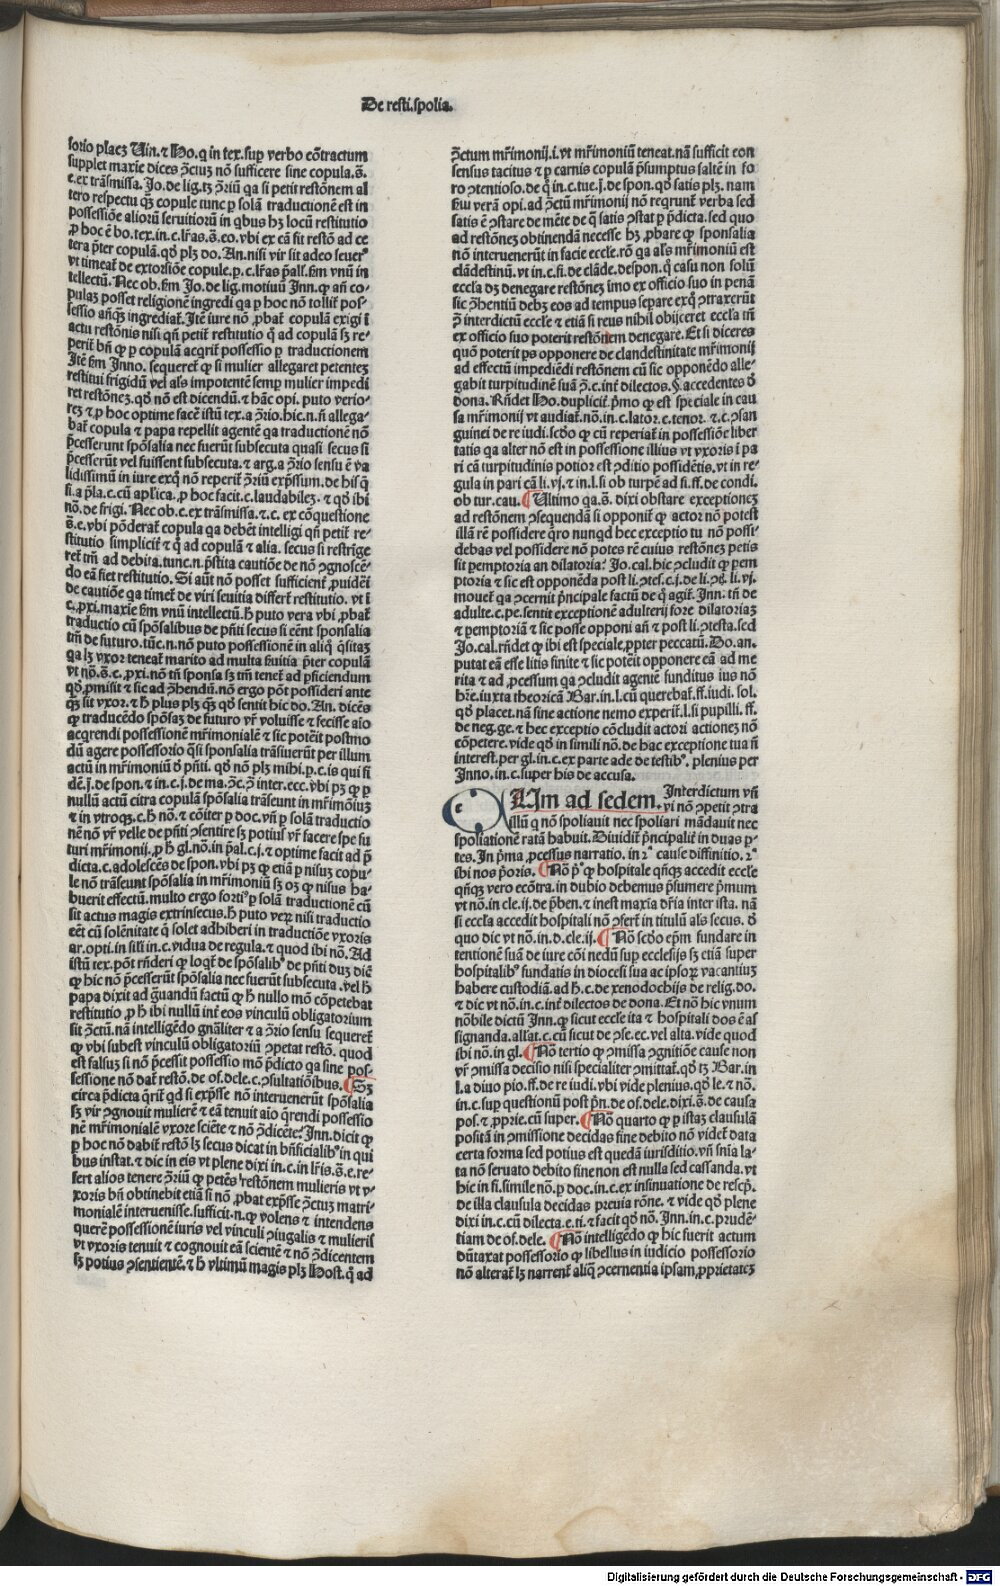 De resti.spolia.
sorio placꝫ Uin.⁊ Ho.q in tex.suꝑ verbo cõtractum
supplet maxie dices ꝯ̃ctuꝫ nõ sufficere sine copula.s̃.
e.ex trãsmissa. Jo.de lig.tꝫ ꝯ̃riũ qa si petit restõnem al
tero respectu qꝫ copule tunc ꝑ solã traductionẽ est in
possessiõe aliorũ seruitiorũ in qbus hꝫ locũ restitutio
ꝓ hoc ẽ bo.tex.in.c.lr̃as.s̃.eo.vbi ex cã fit restõ ad ce
tera p̃ter copulã.qđ plꝫ do. An.nisi vir sit adeo seuer⁹
vt timeat̃ de extorsiõe copule.ꝑ.c.lr̃as p̃all.ẜm vnũ in
tellectũ. Nec ob.ẜm Jo.de lig.motiuũ Inn.ꝙ añ co⸗
pulaꝫ posset religionẽ ingredi qa ꝑ hoc nõ tollit̃ pos⸗
sessio añqꝫ ingrediat̃. Itẽ iure nõ ꝓbat̃ copulã exigi ĩ
actu restõnis nisi qñ petit̃ restitutio q̃ ad copulã sꝫ re⸗
perit̃ bñ ꝙ ꝑ copulã acqrit̃ possessio ꝑ traductionem
Itẽ ẜm Inno. sequeret̃ ꝙ si mulier allegaret petenteꝫ
restitui frigidũ vel als impotentẽ semꝑ mulier impedi
ret restõneꝫ.qđ nõ est dicendũ.⁊ hãc opi. puto verio⸗
reꝫ ⁊ ꝓ hoc optime facẽ istũ tex.a ꝯ̃rio.hic.n.ñ allega⸗
bat̃ copula ⁊ papa repellit agentẽ qa traductionẽ nõ
p̃cesserunt spõsalia nec fuerũt subsecuta quasi secus si
p̃cesserũt vel fuissent subsecuta.⁊ arg.a ꝯ̃rio sensu ẽ va
lidissimũ in iure exq̃ nõ reperit̃ ꝯ̃riũ exp̃ssum.de hisq̃
fi.a p̃la.c.cũ apl̃ica.ꝓ hoc facit.c.laudabileꝫ.⁊ qđ ibi
nõ.de frigi. Nec ob.c.ex trãsmissa.⁊.c. ex cõquestione
s̃.e.vbi põderat̃ copula qa debẽt intelligi qñ petit̃ re⸗
stitutio simplicit̃ ⁊ q̃ ad copulã ⁊ alia. secus si restrige
ret̃ tm̃ ad debita.tunc.n.p̃stita cautiõe de nõ ꝯgnoscẽ⸗
do eã fiet restitutio. Si aũt nõ posset sufficient̃ ꝓuidẽi
de cautiõe qa timet̃ de viri seuitia differt̃ restitutio. vt ĩ
c.ꝓxi.maxie ẜm vnũ intellectũ.h̃ puto vera vbi ꝓbat̃
traductio cũ spõsalibus de p̃nti secus si cẽnt sponsalia
tm̃ de futuro.tũc.n.nõ puto possessionẽ in aliq̃ q̃sitaꝫ
qa lꝫ vxor teneat̃ marito ad multa ẜuitia p̃ter copulã
vt nõ.s̃.c.ꝓxi.nõ tñ sponsa sꝫ tm̃ tenet̃ ad ꝑficiendum
qđ ꝓmisit ⁊ sic ad ꝯ̃hendũ.nõ ergo põt possideri ante
qꝫ sit vxor.⁊ h̃ plus plꝫ qꝫ qđ sentit hic do. An. dicẽs
ꝙ traducẽdo spõsaꝫ de futuro vr̃ voluisse ⁊ fecisse aĩo
acqrendi possessionẽ mr̃imonialẽ ⁊ sic poteit postmo
dũ agere possessorio q̃si sponsalia trãsiuerũt per illum
actũ in mr̃imoniũ đ p̃nti. qđ nõ plꝫ mihi.ꝑ.c.is qui fi
dẽ.j̃.de spon.⁊ in.c.j.de ma.ꝯ̃c.ꝯ̃ inter.ecc.vbi pꝫ ꝙ ꝑ
nullũ actũ citra copulã spõsalia trãseunt in mr̃imoiuꝫ
⁊ in vtroqꝫ.c.h̃ nõ.⁊ cõiter ꝑ doc.vñ ꝑ solã traductio
nẽ nõ vr̃ velle de p̃nti ꝯsentire sꝫ potius vr̃ facere spe fu
turi mr̃imonij.ꝓ h̃ gl.nõ.in p̃al.c.j.⁊ optime facit ad p̃
dicta.c.adolescẽs de spon.vbi pꝫ ꝙ etiã ꝑ nisuꝫ copu⸗
le nõ trãseunt spõsalia in mr̃imoniũ sꝫ oꝫ ꝙ nisus ha⸗
buerit effectũ.multo ergo forti⁹ ꝑ solã traductionẽ cũ
sit actus magis extrinsecus.h̃ puto veꝝ nisi traductio
eẽt cũ solẽnitate q̃ solet adhiberi in traductiõe vxoris
ar.opti.in sili in.c.vidua de regula.⁊ quod ibi nõ. Ad
istũ tex.põt rñderi ꝙ loqt̃ de spõsalib⁹ de p̃nti duꝫ diẽ
ꝙ hic nõ p̃cesserũt spõsalia nec fuerũt subsecuta.vel h̃
papa dixit ad g̃uandũ factũ ꝙ h̃ nullo mõ cõpetebat
restitutio ꝓ h̃ ibi nullũ int̃ eos vinculũ obligatorium
sit ꝯ̃ctũ.nã intelligẽdo gnãliter ⁊ a ꝯ̃rio sensu sequeret̃
ꝙ vbi subest vinculũ obligatoriũ ꝯpetat restõ. quod
est falsuꝫ si nõ p̃cessit possessio mõ p̃dicto qa sine pos⸗
sessione nõ dat̃ restõ.de of.dele.c.ꝯsultatiõibus. ¶ Sꝫ
circa p̃dicta q̃rit̃ qd si exp̃sse nõ interuenerũt spõsalia
sꝫ vir ꝯgnouit mulierẽ ⁊ eã tenuit aĩo q̃rendi possessio
nẽ mr̃imonialẽ vxore sciẽte ⁊ nõ ꝯ̃dicẽte. Inn.dicit ꝙ
ꝑ hoc nõ dabit̃ restõ lꝫ secus dicat in bñficialib⁹ in qui
bus instat.⁊ dic in eis vt plene dixi in.c.in lr̃is.s̃.e.re⸗
fert alios tenere ꝯ̃riũ ꝙ petẽs restõnem mulieris vt v⸗
xoris bñ obtinebit etiã si nõ ꝓbat exp̃sse ꝯ̃ctuꝫ matri⸗
monialẽ interuenisse.sufficit.n.ꝙ volens ⁊ intendens
querẽ possessionẽ iuris vel vinculi ꝯiugalis ⁊ mulieris
vt vxoris tenuit ⁊ cognouit eã scientẽ ⁊ nõ ꝯ̃dicentem
sꝫ potius ꝯsentientẽ.⁊ h̃ vltimũ magis plꝫ Host.q̃ ad
ꝯ̃ctum mr̃imonij.i.vt mr̃imoniũ teneat.nã sufficit con
sensus tacitus ⁊ ꝑ carnis copulã p̃sumptus saltẽ in fo
ro ꝯtentioso.de q̃ in.c.tue.j̃.de spon.qđ satis plꝫ. nam
ẜm verã opi.ad ꝯ̃ctũ mr̃imonij nõ reqrunt̃ verba sed
satis ẽ ꝯstare de mẽte de q̃ satis ꝯstat ꝑ p̃dicta.sed quo
ad restõneꝫ obtinendã necesse hꝫ ꝓbare ꝙ sponsalia
nõ interuenerũt in facie eccle.rõ qa als mr̃imoniũ est
clãdestinũ.vt in.c.fi.de clãde.despon.q̃ casu non solũ
eccla dꝫ denegare restõneꝫ imo ex officio suo in penã
sic ꝯ̃hentiũ debꝫ eos ad tempus separe exq̃ ꝯtraxerũt
ꝯ̃ interdictũ eccle ⁊ etiã si reus nihil obijceret eccla tñ
ex officio suo poterit restõnem denegare. Et si diceres
quõ poterit ps opponere de clandestinitate mr̃imonij
ad effectũ impediẽdi restõnem cũ sic opponẽdo alle⸗
gabit turpitudinẽ suã ꝯ̃.c.int̃ dilectos.§.accedentes đ
dona. Rñdet Ho.duplicit̃.p̃mo ꝙ est speciale in cau
sa mr̃imonij vt audiat̃.nõ.in.c.lator.c.tenor.⁊.c.ꝯsan
guinei de re iudi.scđo ꝙ cũ reperiat̃ in possessiõe liber
tatis qa alter nõ est in possessione illius vt vxoris ĩ pa
ri cã turpitudinis potior est ꝯditio possidẽtis.vt in re⸗
gula in pari cã li.vj.⁊ in.l.si ob turpẽ ad fi.ff.de condi.
ob tur.cau. ¶ Ultimo qa.s̃. dixi obstare exceptioneꝫ
ad restõnem ꝯsequendã si opponit̃ ꝙ actor nõ potest
illã rẽ possidere q̃ro nunqd hec exceptio tu nõ possi⸗
debas vel possidere nõ potes rẽ cuius restõneꝫ petis
sit ꝑemptoria an dilatoria? Jo.cal.hic ꝯcludit ꝙ ꝑem
ptoria ⁊ sic est opponẽda post li.ꝯtes.c.j.de li.ꝯt̃.li.vj.
mouet̃ qa ꝯcernit p̃ncipale factũ de q̃ agit̃. Inn. tñ de
adulte.c.pe.sentit exceptionẽ adulterij fore dilatoriaꝫ
⁊ ꝑemptoriã ⁊ sic posse opponi añ ⁊ post li.ꝯtesta.sed
Jo.cal.rñdet ꝙ ibi est speciale ꝓpter peccatũ. Do.an.
putat eã esse litis finite ⁊ sic poteit opponere eã ad me
rita ⁊ ad ꝓcessum qa ꝯcludit agentẽ funditus ius nõ
hr̃e.iuxta theoricã Bar.in.l.cũ querebat̃.ff.iudi. sol.
qđ placet.nã sine actione nemo experit̃.l.si pupilli. ff.
de neg.ge.⁊ hec exceptio cõcludit actori actioneꝫ nõ
cõpetere.vide qđ in simili nõ.de hac exceptione tua ñ
interest.per gl.in.c.ex parte ade de testib⁹. plenius per
Inno.in.c.super his de accusa.
OLim ad sedem. Interdictum vñ
vi nõ ꝯpetit ꝯtra
illũ q nõ spoliauit nec spoliari mãdauit nec
spoliationẽ ratã habuit. Diuidit̃ p̃ncipalit̃ in duas ꝑ⸗
tes. In p̃ma ꝓcessus narratio. in 2ª cause diffinitio. 2ª
ibi nos p̃oris. ¶ Nõ p⁰ ꝙ hospitale qñqꝫ accedit eccle
qñqꝫ vero ecõtra.in dubio debemus p̃sumere p̃mum
vt nõ.in cle.ij.de p̃ben.⁊ inest maxia dr̃ia inter ista. nã
si eccla accedit hospitali nõ ꝯfert̃ in titulũ als secus. đ
quo dic vt nõ.in.d.cle.ij. ¶ Nõ scđo ep̃m fundare in
tentionẽ suã de iure cõi nedũ suꝑ ecclesijs sꝫ etiã super
hospitalib⁹ fundatis in diocesi sua ac ipsoꝝ vacantiuꝫ
habere custodiã.ad h̃.c.de xenodochijs de relig.do.
⁊ dic vt nõ.in.c.int̃ dilectos de dona. Et nõ hic vnum
nõbile dictũ Inn.ꝙ sicut eccle ita ⁊ hospitali dos ẽ as
signanda.allat.c.cũ sicut de ꝯse.ec.vel alta.vide quod
ibi nõ.in gl. ¶ Nõ tertio ꝙ ꝯmissa ꝯgnitiõe cause non
vr̃ ꝯmissa decisio nisi specialiter ꝯmittat̃.qđ tꝫ Bar.in
l.a diuo pio.ff.de re iudi.vbi vide plenius.qđ le.⁊ nõ.
in.c.suꝑ questionũ post pñ.de of.dele.dixi.s̃.de causa
pos.⁊ ꝓprie.cũ super. ¶ Nõ quarto ꝙ ꝑ istaꝫ clausulã
positã in ꝯmissione decidas fine debito nõ videt̃ data
certa forma sed potius est quedã iurisditio.vñ snĩa la⸗
ta nõ seruato debito fine non est nulla sed cassanda.vt
hic in fi.simile nõ.ꝑ doc.in.c.ex insinuatione de rescp̃.
de illa clausula decidas preuia rõne.⁊ vide qđ plene
dixi in.c.cũ dilecta.e.ti.⁊ facit qđ nõ. Inn.in.c.prudẽ⸗
tiam de of.dele. ¶ Nõ intelligẽdo ꝙ hic fuerit actum
dũtaxat possessorio ꝙ libellus in iudicio possessorio
nõ alterat̃ lꝫ narrent̃ aliq̃ ꝯcernentia ipsam ꝓprietateꝫ
Digitalisierung gefördert durch die Deutsche Forschungsgemeinschaft - DFG